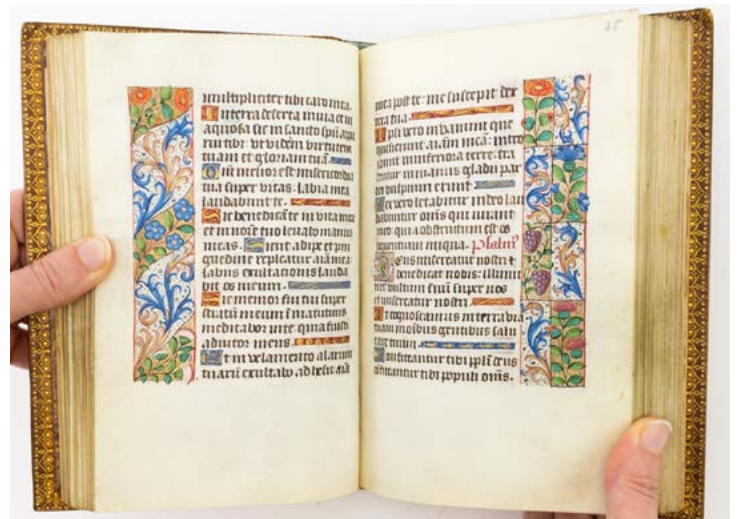 multipliciter tibi caro mea.
In terra deserta inuia et in
aquosa sic in sancto
rui tibi: vt viderẽ virtutem
tuam et gloriam tuã.
Qm̃ melior est misericordia
tua super vitas: labia mea
laudabunt te.
Sic benedicã te in vita mea
et in noĩe tuo leuabo manus
meas. Sicut adipe et pin
guedine repleatur aĩa mea
labiis exultationis lauda
bit os meum.
Sic memor fui tui super
stratũ meum ĩ matutinis
meditabor in te: quia fuisti
adiutor meus.
Et in velamento alarum
tuarũ exultabo. adhesit aĩa
mea post te: me suscepit dex
tera tua.
Ipsi vero in vanum que
sierunt aĩam meã: intro
ibunt in inferiora terre: tra
dentur in manus gladii par
tes vulpium erunt
Rex vero letabitur in deo lau
dabuntur om̃s qui iurant
in eo quia obstructum est os
loquentium iniqua. psalm̃
Deus misereatur nostri &
benedicat nobis: illumint
vultum suũ super nos
et misereatur nostri.
Ut cognoscamus in terra via
tuam in oĩbus gentibus salu
tare tuum.
Confiteantur tibi pp̃li deus
cõfiteantur tibi populi om̃s.